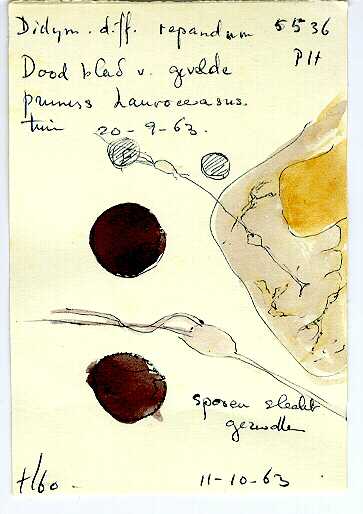 Didym. diff. repandum 5536
PH
Dood blad v. gevelde
prunus Laurocerasus.
tuin 20-9-63.
sporen slecht
gezwollen
t/60
11-10-63